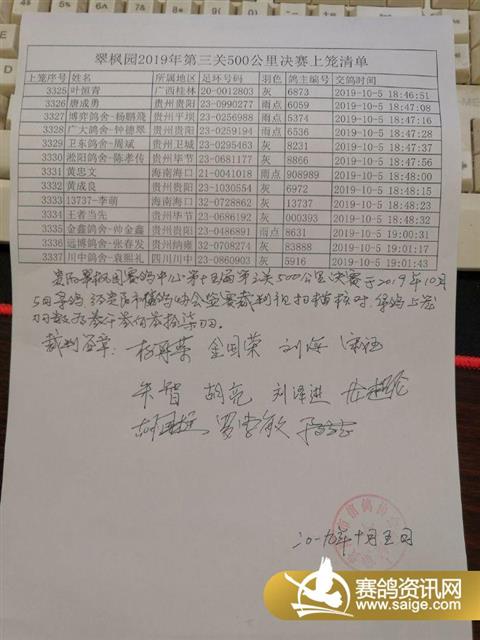 翠枫园2019年第三关500公里决赛上笼清单
上笼序号 姓名 所属地区 足环号码 羽色 鸽主编号 交鸽时间
3325 叶恒青 广西桂林 20-0012803 灰 6873 2019-10-5 18:46:51
3326 唐成勇 贵州贵阳 23-0990277 雨点 6059 2019-10-5 18:47:08
3327 博弈鸽舍-杨鹏飛 贵州平坝 23-0256988 雨点 5374 2019-10-5 18:47:17
3328 广大鸽舍-钟德翠 贵州贵阳 23-0259194 雨点 6536 2019-10-5 18:47:28
3329 卫东鸽舍-周斌 贵州卫城 23-0295463 灰 8231 2019-10-5 18:47:37
3330 淞阳鸽舍-陈孝传 贵州毕节 23-0681177 灰 8866 2019-10-5 18:47:56
3331 黄忠文 海南海口 21-0041018 雨点 908989 2019-10-5 18:48:00
3332 黄成良 贵州贵阳 23-1030554 灰 6972 2019-10-5 18:48:15
3333 13737-李萌 海南海口 32-0728862 灰 13737 2019-10-5 18:48:23
3334 王者当先 贵州毕节 23-0686192 灰 000393 2019-10-5 18:48:32
3335 金鑫鸽舍-帅金鑫 贵州贵阳 23-0486490 雨点 8631 2019-10-5 19:00:31
3336 远博鸽舍-张春发 贵州纳雍 32-0708274 灰 83888 2019-10-5 19:01:17
3337 川中鸽舍-袁熙礼 四川川中 23-0860903 灰 5916 2019-10-5 19:01:43
贵阳翠枫园赛鸽中心第十五届第三关500公里决赛于2019年10月
5日集鸽 经贵阳市信鸽协会监赛裁判组扫描核对,集鸽上笼
羽数为叁仟叁佰叁拾柒羽。
裁判签章:
朱智 胡亮 刘泽进
二〇一九年十月五日
赛鸽资讯网
www.saige.com